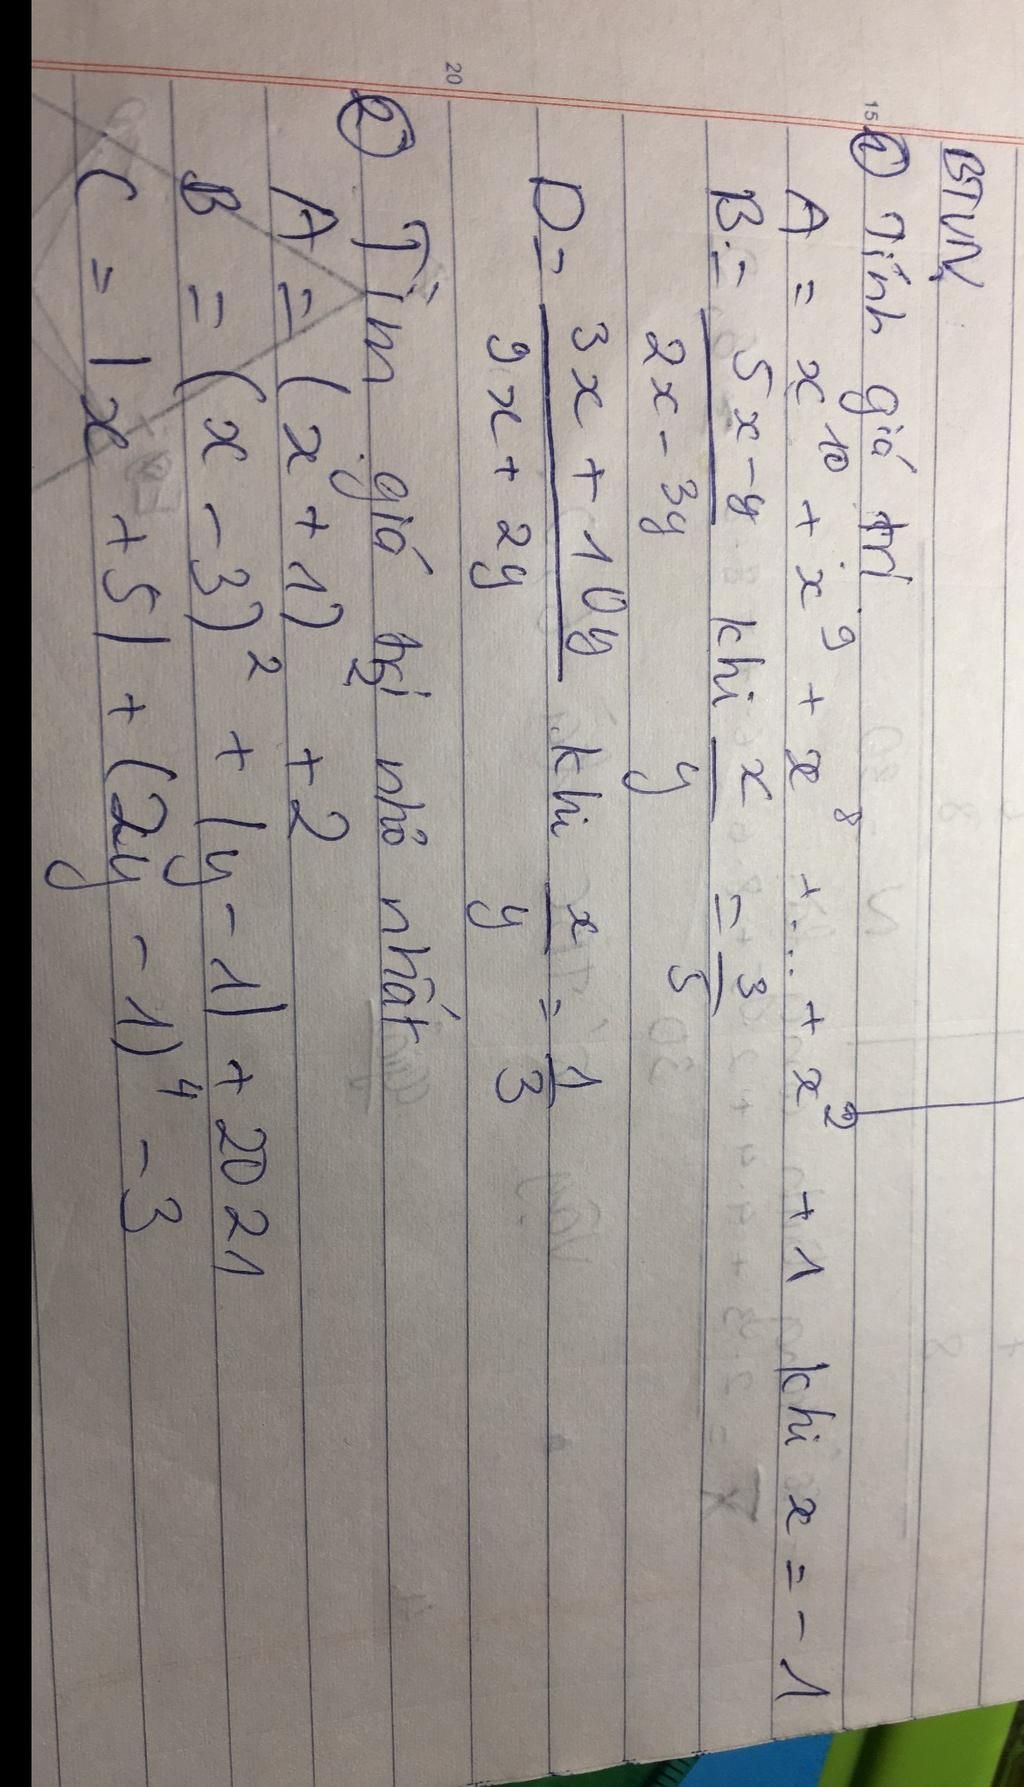 BTVN
① Tính giá trị
A = x¹⁰ + x⁹ + x⁸ + ... + x² + 1 khi x = -1
B = (5x - y)/(2x - 3y) khi x/y = 3/5
D = (3x + 10y)/(9x + 2y) khi x/y = 1/3
② Tìm giá trị nhỏ nhất
A = (x + 1)² + 2
B = (x - 3)² + |y - 1| + 2021
C = |x + 5| + (2y - 1)⁴ - 3
15
20